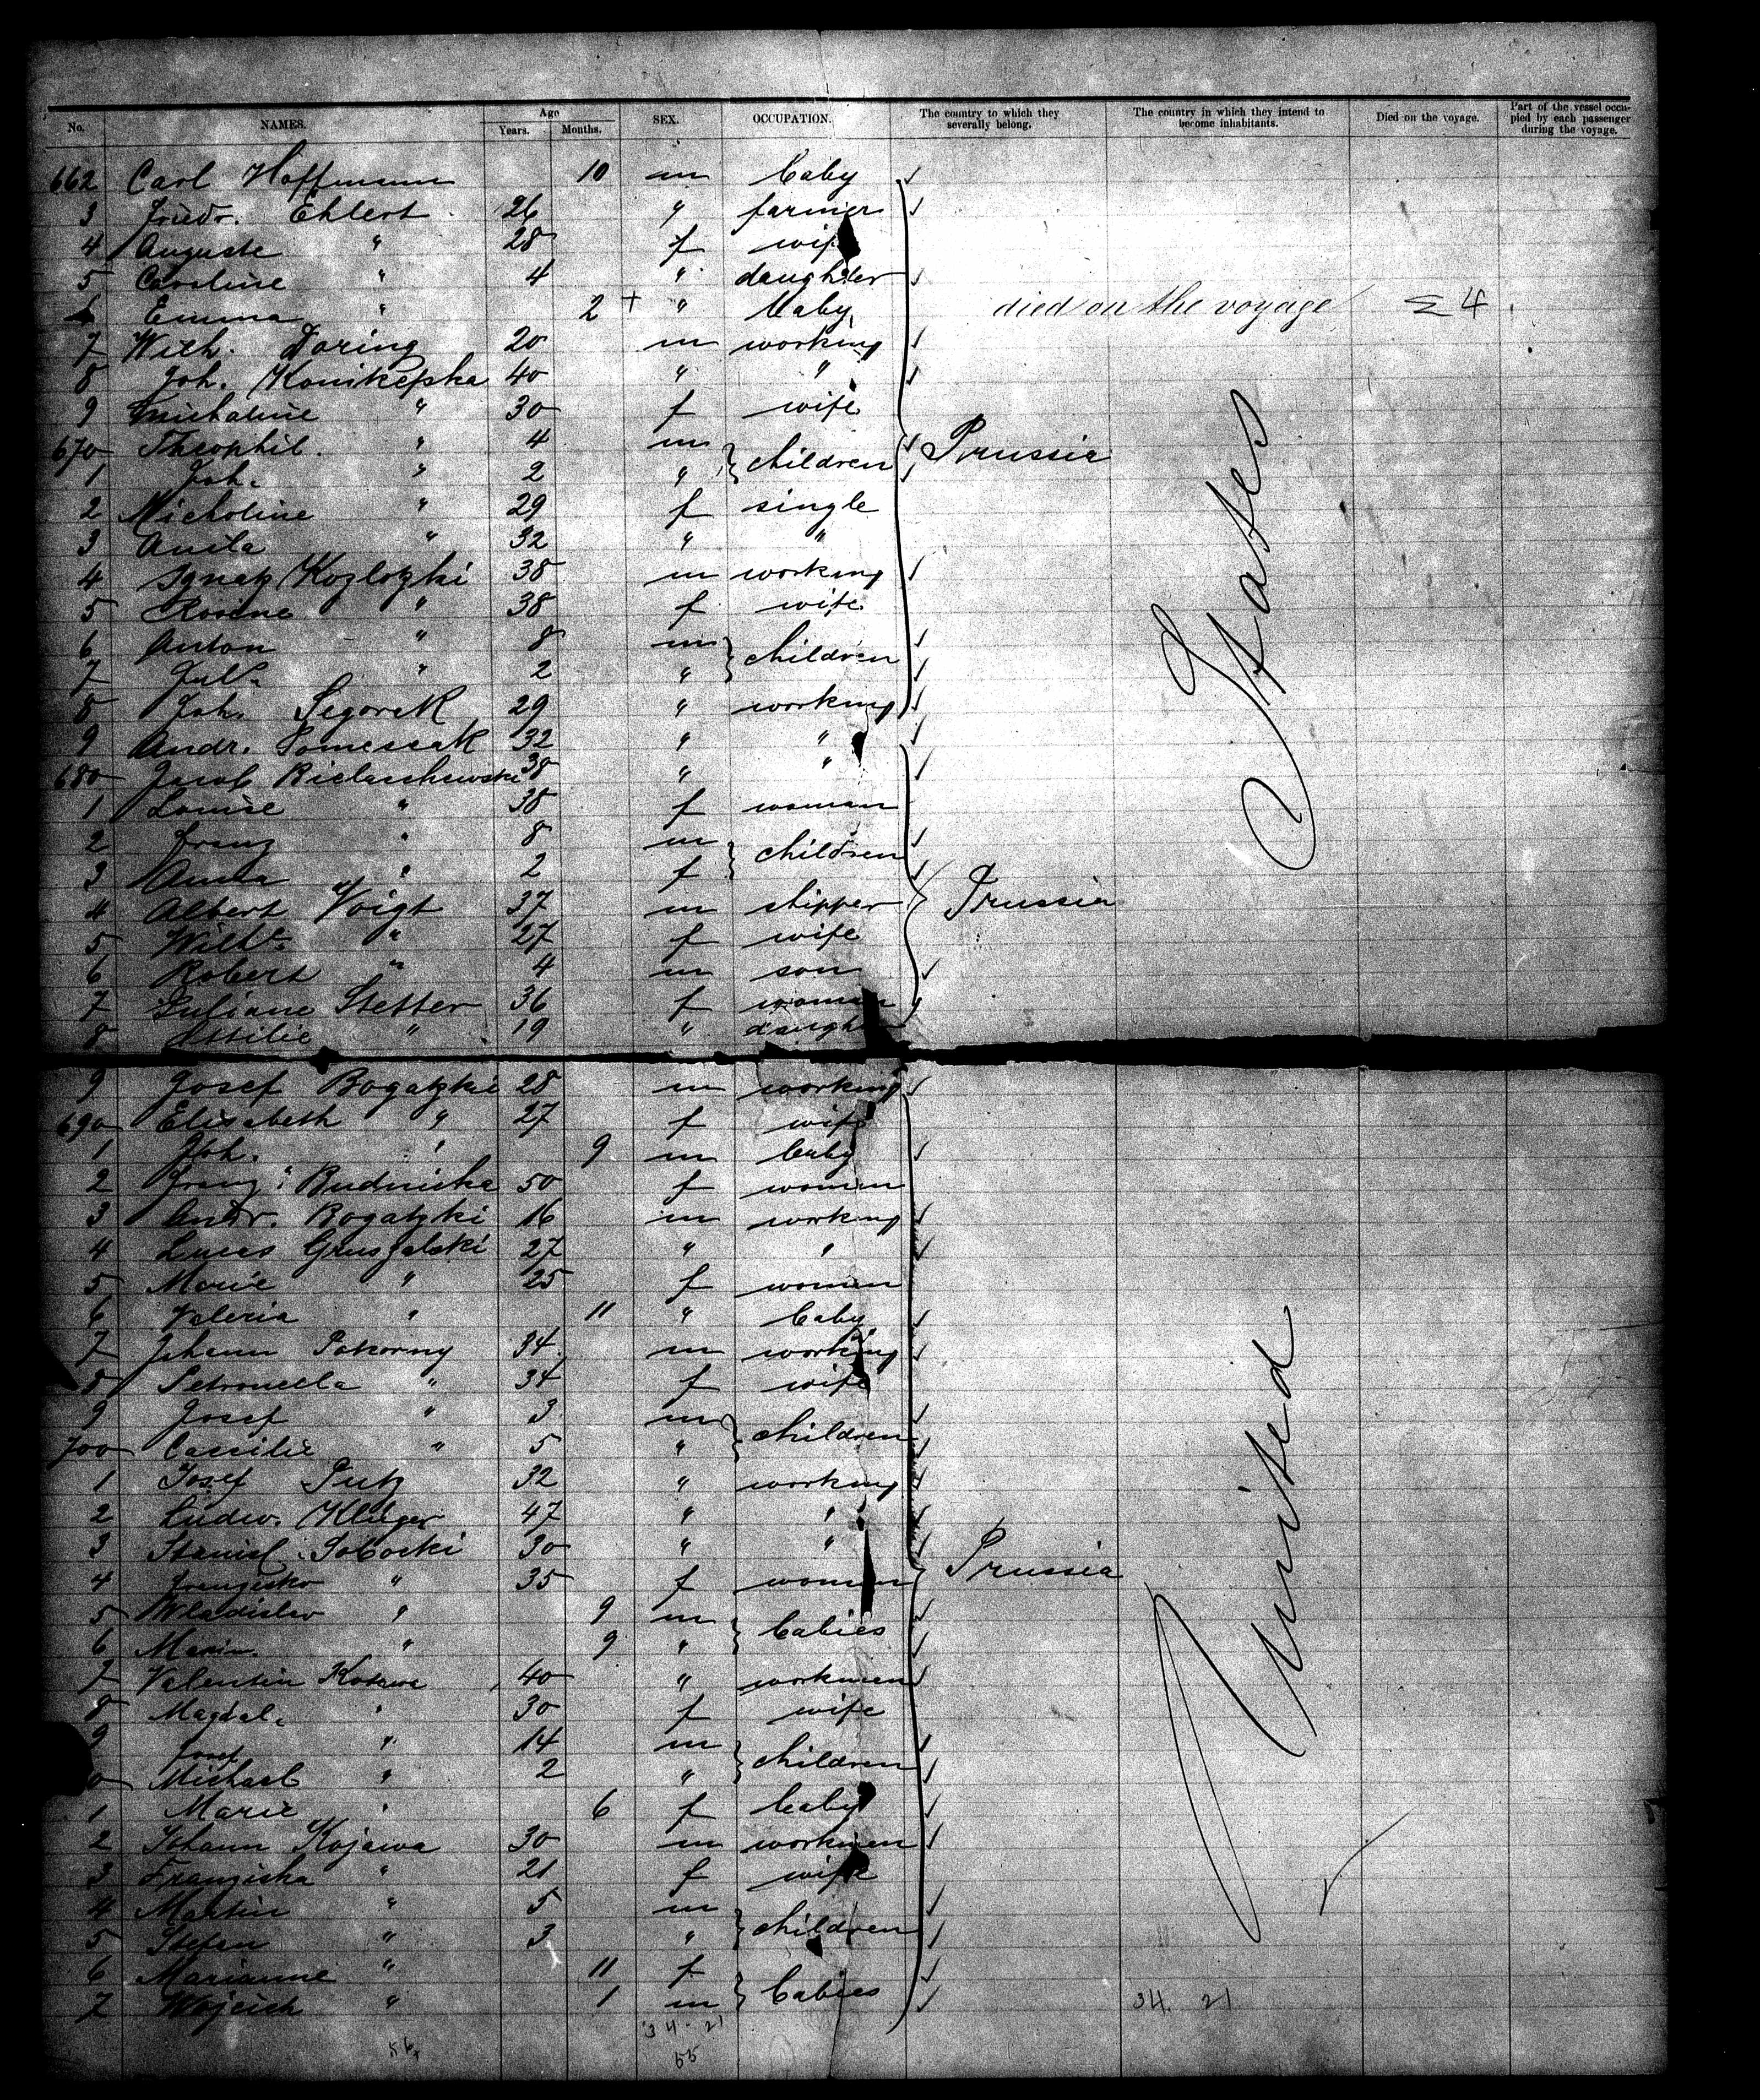 No. NAMES. Age Years. Months. SEX. OCCUPATION. The country to which they severally belong. The country in which they intend to become inhabitants. Died on the voyage. Part of the vessel occupied by each passenger during the voyage.
662 Carl Hoffmann 10 m baby
3 Friedr. Ehlert 26 " farmer
4 Auguste " 28 f wife
5 Caroline " 4 " daughter
6 Emma " 2 + " baby died on the voyage 4
7 Wilh. Doring 20 m working
8 Joh. 40 " "
9 Michaline " 30 f wife
670 Theophil. " 4 m children Prussia
1 Joh. " 2 "
2 Micholine " 29 f single
3 " 32 " "
4 Ignatz Kozlotzki 38 m working
5 Rosine " 38 f wife
6 Anton " 8 m children
7 Jul. " 2 "
8 Joh. Segorek 29 " working
9 Andr. Pomessak 32 " "
680 Jacob Bielaschewski 38 " "
1 Louise " 38 f woman
2 Franz " 8 m children
3 Anna " 2 f
4 Albert Voigt 37 m shipper Prussia
5 Wilhe " 27 f wife
6 Robert " 4 m son
7 Juliane Stetter 36 f woman
8 Ottilie " 19 " daugh
9 Josef Bogatzki 28 m working
690 Elisabeth " 27 f wife
1 Joh. " 9 m baby
2 Franz. Budnicka 50 f women
3 Andr. Bogatzki 16 m working
4 Lucas 27 " "
5 Marie " 25 f women
6 Valeria " 11 " baby
7 Johann Pokorny 34 m working
8 Petronella " 34 f wife
9 Josef " 3 m children
700 Cacilie " 5 "
1 Josef Putz 32 " working
2 Ludw. Kluger 47 " "
3 Stanisl. Sobocki 30 " "
4 Franziska " 35 f women Prussia
5 Wladislav " 9 m babies
6 Marin. " 9 "
7 Valentin 40 " workmen
8 Magdal. " 30 f wife
9 Josef " 14 m children
0 Michael " 2 "
1 Marie " 6 f baby
2 Johann Kojawa 30 m workmen
3 Franziska " 21 f wife
4 Martin " 5 m children
5 Stefan " 3 "
6 Marianne " 11 f babies
7 Wojcich " 1 m
34 21
34 - 21
56
55
United States